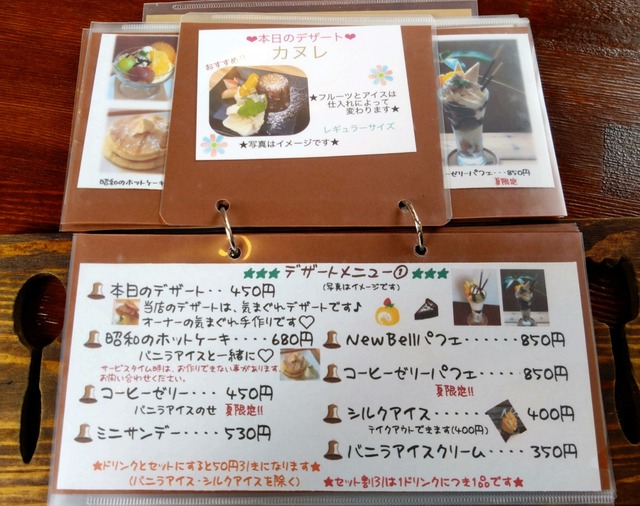 ❤本日のデザート❤
カヌレ
おすすめ♡
★フルーツとアイスは
仕入れによって
変わります★
レギュラーサイズ
★写真はイメージです★
昭和のホットケーキ
ーゼリーパフェ・・・850円
夏限定
★★★ デザートメニュー① ★★★
(写真はイメージです)
本日のデザート・・450円
当店のデザートは、気まぐれデザートです♪
オーナーの気まぐれ手作りです♡
昭和のホットケーキ・・・・680円
バニラアイスと一緒に♡
サービスタイム時は、お作りできない事があります。
お問い合わせください。
コーヒーゼリー・・・450円
バニラアイスのせ 夏限定!!
ミニサンデー・・・・530円
NewBellパフェ・・・・・・850円
コーヒーゼリーパフェ・・・・850円
夏限定!!
シルクアイス・・・・・ 400円
テイクアウトできます(400円)
バニラアイスクリーム・・・・350円
★ドリンクとセットにすると50円引きになります★
(バニラアイス・シルクアイスを除く)
★セット割引は1ドリンクにつき1品です★